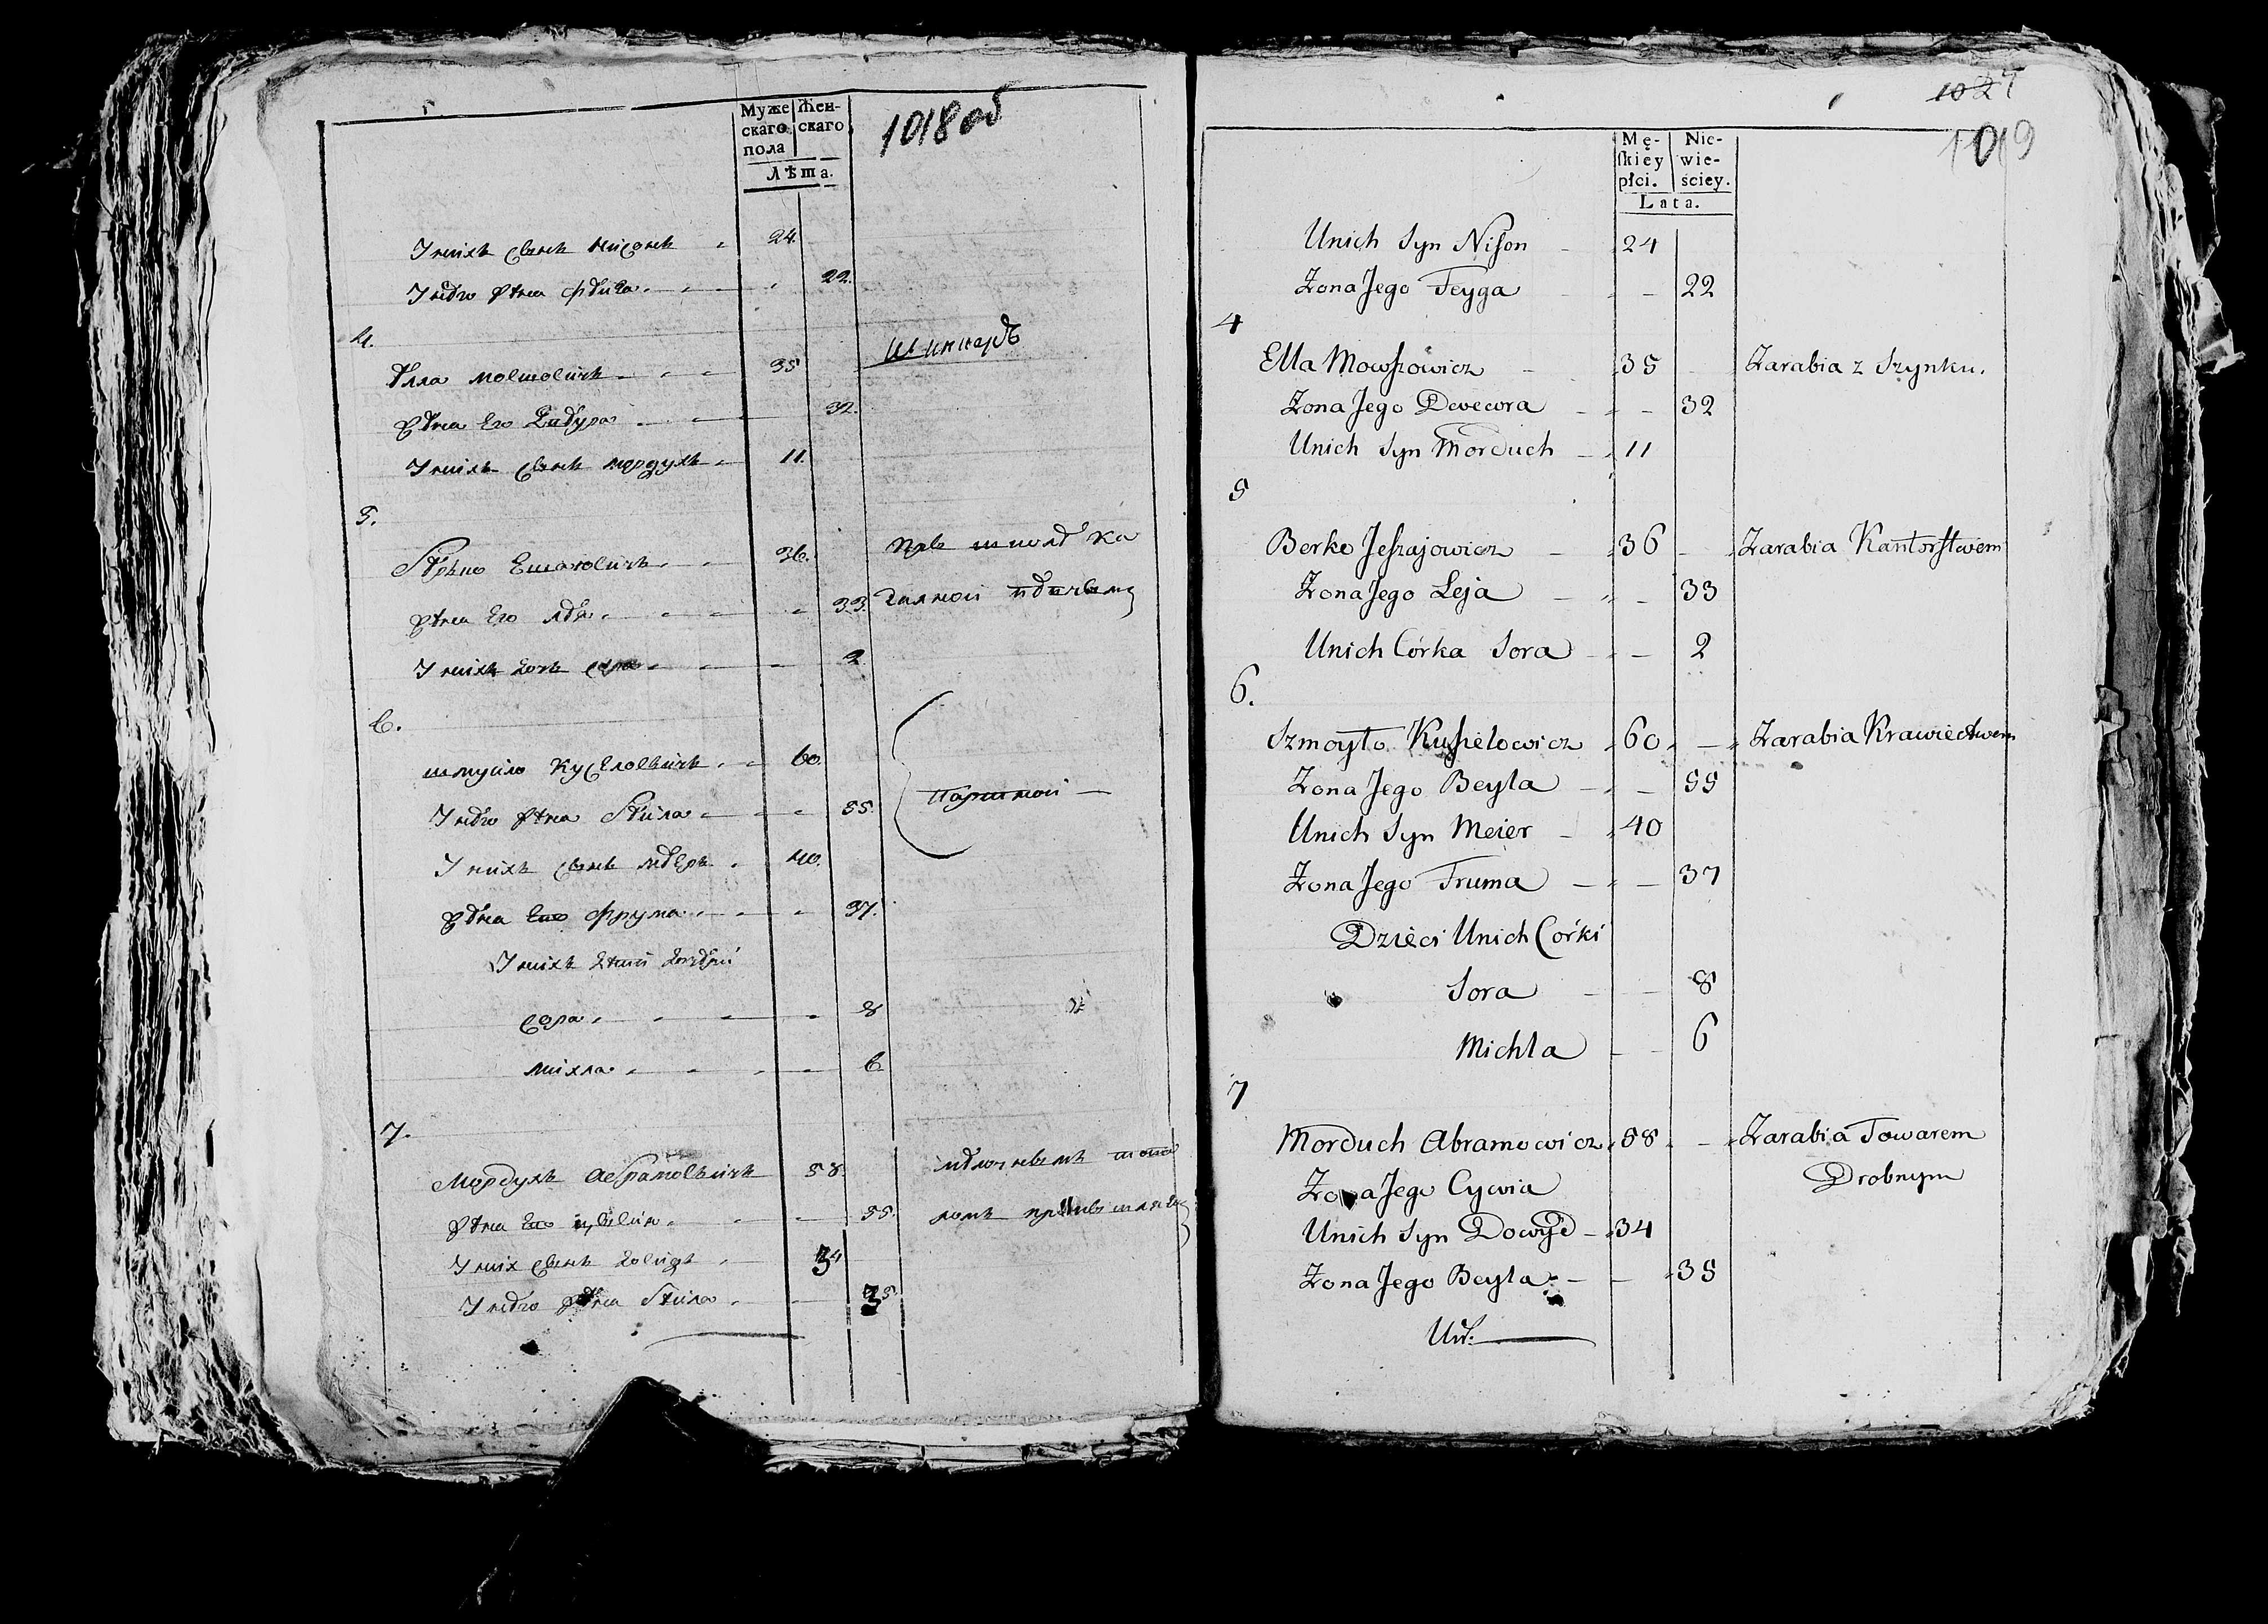 1018 об
Муже
скаго
пола
Жен-
скаго
Лѣта.
У нихъ сынъ нисонъ 24.
У него жена фейга 22.
4.
Элла мовшовичъ 35 шинкаръ
жена Его двеура 32.
У нихъ сынъ мордухъ 11.
5.
Берко Ешаіовичъ 36. При школѣ ка
жена Его лея 33.
У нихъ дочь сора 2
6.
шмуйло Кусѣловичъ 60.
У него жена Бейла 55. Портной
У нихъ сынъ меэръ 40.
жена Его фрума 37.
У нихъ дѣти дочери
сора 8
михла 6
7.
Мордухъ Абрамовичъ 58. мелочнымъ това
жена Его цывія 55. ромъ
У них сынъ довидъ 34
У него жена Бейла 35.
1027
1019
Mę-
skiey
płci.
Nie-
wie-
ściey.
Lata.
Unich Syn Nison 24
Żona Jego Feyga 22
4
Ella Mowszowicz 35 Zarabia z Szynku.
Żona Jego Dweora 32
Unich Syn Morduch 11
5
Berko Jeszajowicz 36 Zarabia Kantorstwem
Żona Jego Leja 33
Unich Córka Sora 2
6.
Szmoyło Kusielowicz 60 Zarabia Krawiectwem
Żona Jego Beyla 55
Unich Syn Meier 40
Żona Jego Fruma 37
Dzieci Unich Córki
Sora 8
Michla 6
7
Morduch Abramowicz 58 Zarabia Towarem
Żona Jego Cywia Drobnym
Unich Syn Dowyd 34
Żona Jego Beyla 35